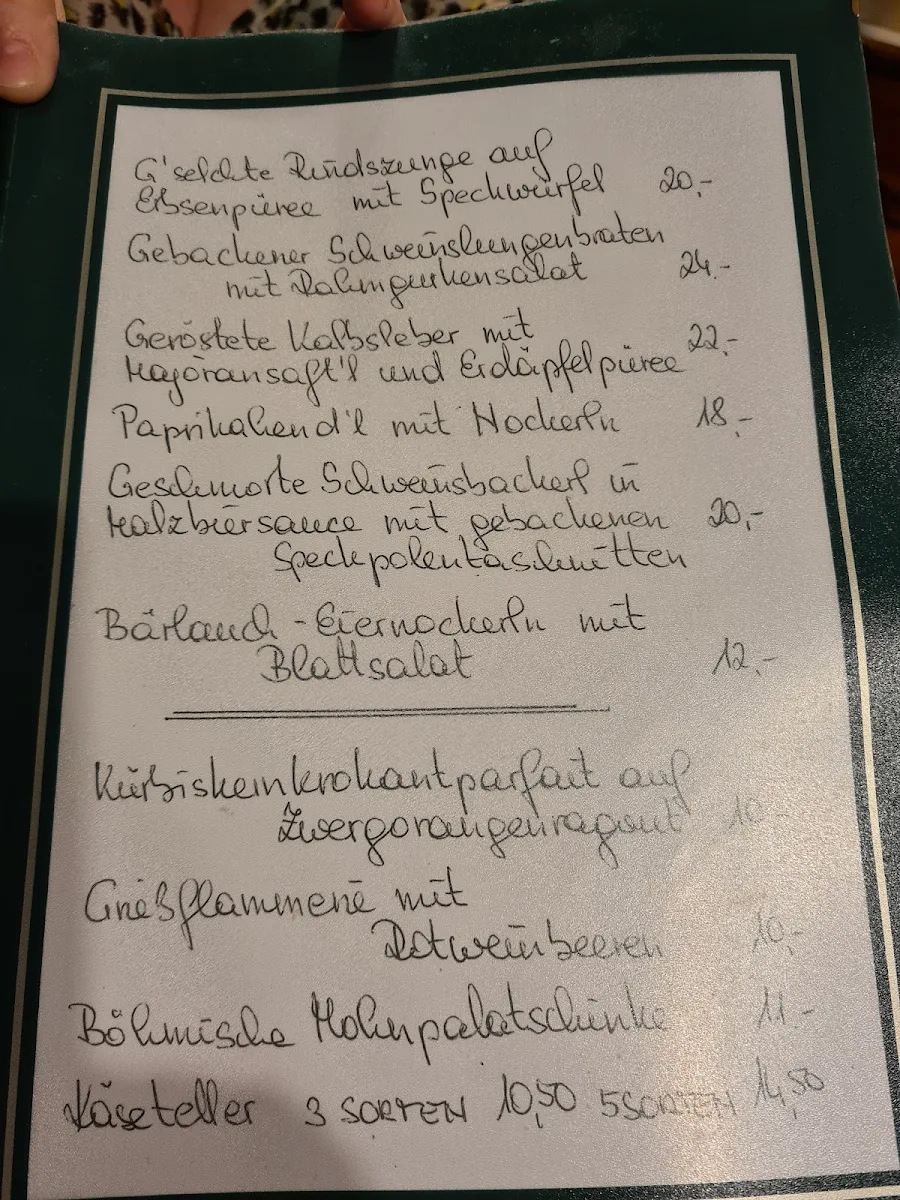 G'selchte Rindszunge auf
Erbsenpüree mit Speckwürfel 20,-
Gebackener Schweinslungenbraten
mit Rahmgurkensalat 24.-
Geröstete Kalbsleber mit
Majoransaft'l und Erdäpfelpüree 22,-
Paprikahend'l mit Nockerln 18,-
Geschmorte Schweinsbackerl in
Malzbiersauce mit gebackenen 20,-
Speckpolentaschnitten
Bärlauch - Eiernockerln mit
Blattsalat 12,-
Kürbiskernkrokantparfait auf
Zwergorangenragout 10.-
Grießflammerie mit
Rotweinbeeren 10,-
Böhmische Mohnpalatschinke 11.-
Käseteller 3 SORTEN 10,50 5 SORTEN 14,50